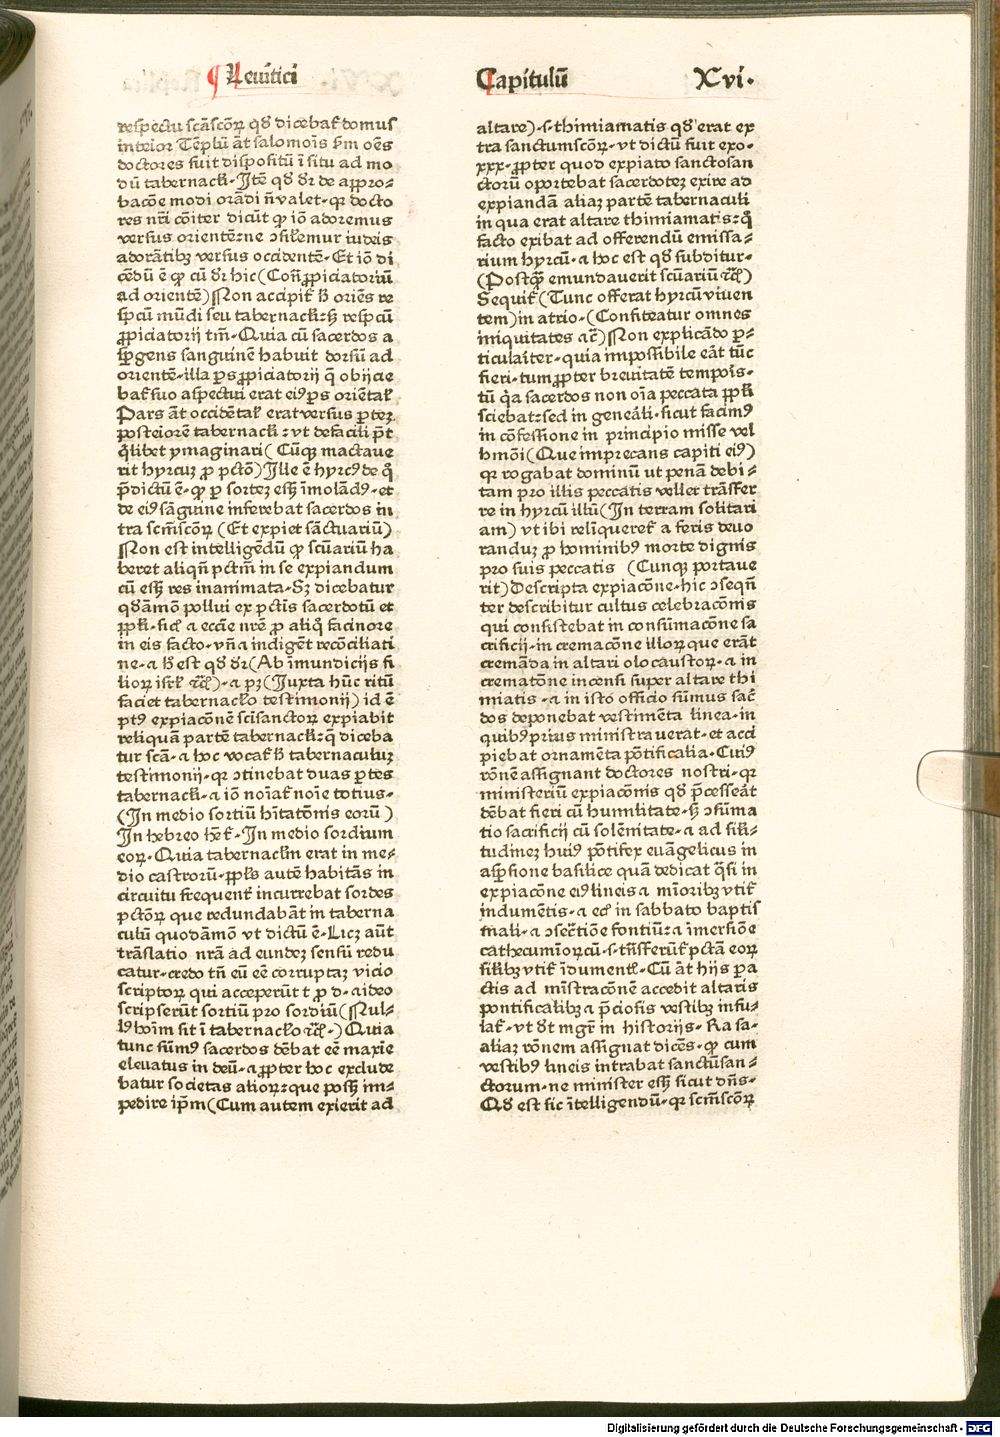 ¶ Leuitici
Capitulū Xvi.
respectu scāscoꝝ qđ dicebat᷑ domus
interior Tēplū āt salomōis ẜm oēs
doctores fuit dispositū ī situ ad mo
dū tabernacłi. Itē qđ dr̄ de appro⸗
bacōe modi orādi n̄ valet. qꝛ docto
res nr̄i cōiter dicūt ꝙ iō adoremus
versus orientē: ne ꝯsilemur iudeis
adorātibꝫ versus occidentē. Et iō di
cēdū ē ꝙ cū dr̄ hic (Cont̄ ꝓpiciatoriū
ad orientē) Non accipit᷑ h̄ oriēs re
spc̄u mūdi seu tabernacłi: sꝫ respc̄u
ꝓpiciatorij tm̄. Quia cū sacerdos a
spergens sanguinē habuit dorsū ad
orientē. illa ꝑs ꝓpiciatorij q̄ obijcie
bat᷑ suo aspectui erat eiꝰ ꝑs oriētał.
Pars āt occidētał erat versus ꝑteꝫ
posteriorē tabernacłi: vt defacili pōt
qͥlibet ymaginari (Cūqꝫ mactaue
rit hyrcuꝫ ꝓ pctō) Ille ē hyrcꝰ de qͦ
p̄dictū ē. ꝙ ꝑ sorteꝫ eēt īmolādꝰ. et
de eiꝰ sāguine inferebat sacerdos in
tra scm̄scoꝝ (Et expiet sāctuariū)
Non est intelligēdū ꝙ scūariū ha
beret aliqn̄ pctm̄ in se expiandum
cū eēt res inanimata. Sꝫ dicebatur
qđāmō pollui ex pctīs sacerdotū et
ꝓpłi. sicł a eccīe nrē ꝓ aliqͦ facinore
in eis facto. vn̄ a indigēt recōciliati
ne. a h̄ est qđ dr̄ (Ab īmundicijs fi
lioꝝ isrł ꝛc̄) a pꝫ (Iuxta hūc ritū
faciet tabernacło testimonij) id ē
ptꝰ expiacōnē scīsanctoꝝ expiabit
reliquā partē tabernacłi: q̄ diceba
tur scā. a hoc vocat᷑ h̄ tabernaculuꝫ
testimonij. qꝛ ꝯtinebat duas ꝑtes
tabernacłi. a iō noīat᷑ noīe totius.
(In medio sortiū hītatōnis eorū)
In hebreo hēt᷑. In medio sordium
eoꝝ. Quia tabernacłm erat in me⸗
dio castrorū. ꝓpłs autē habitās in
circuitu frequent᷑ incurrebat sordes
pctōꝝ que redundabāt in taberna
culū quodāmō vt dictū ē. Licꝫ aūt
trāslatio nrā ad eundeꝫ sensū redu
catur. credo tn̄ eū eē corruptaꝫ vicio
scriptoꝝ qui acceperūt t ꝓ d. a ideo
scripserūt sortiū pro sordiū (Nul⸗
lꝰ hoīm sit ī tabernacło ꝛc̄.) Quia
tunc sūmꝰ sacerdos dēbat eē maxīe
eleuatus in deū. a ꝓpter hoc exclude
batur societas alioꝝ: que posꝫ im⸗
pedire ip̄m (Cum autem exierit ad
altare). s. thimiamatis qđ erat ex
tra sanctumscoꝝ. vt dictū fuit exo.
xxx. ꝓpter quod expiato sanctosan
ctorū oportebat sacerdoteꝫ exire ad
expiandā aliaꝫ partē tabernaculi
in qua erat altare thimiamatis: qͦ
facto exibat ad offerendū emissa⸗
rium hyrcū. a hoc est qđ subditur.
(Postqͣ emundauerit scūariū ꝛc̄)
Sequit᷑ (Tunc offerat hyrcū viuen
tem) in atrio. (Confiteatur omnes
iniquitates ac̄) Non explicādo ꝑ⸗
ticulaīter. quia impossibile eāt tūc
fieri. tum ꝓpter breuitatē tempoīs.
tū qͥa sacerdos non oīa peccata ꝓpłi
sciebat: sed in geneāli. sicut facimꝰ
in cōfessione in principio misse vel
hmōi (Que imprecans capiti eiꝰ)
qꝛ rogabat dominū ut penā debi⸗
tam pro illis peccatis vellet trāsfer
re in hyrcū illū (In terram solitari
am) vt ibi relīqueret᷑ a feris deuo
randuꝫ ꝓ hominibꝰ morte dignis
pro suis peccatis (Cunqꝫ portaue
rit) Descripta expiacōne. hic ꝯseqn̄
ter describitur cultus celebracōnis
qui consistebat in consūmacōne sa
crificij. in cremacōne illoꝝ que erāt
cremāda in altari olocaustoꝝ. a in
crematōne incensi super altare thi
miatis. a in isto officio sūmus sac̄
dos deponebat vestimēta linea. in
quibꝰ prius ministrauerat. et acci
piebat ornamēta pōtificalia. Cuiꝰ
rōnē assignant doctores nostri. qꝛ
ministeriū expiacōnis qđ p̄cesseāt
dēbat fieri cū humilitate. sꝫ ꝯsūma
tio sacrificij cū solēnitate. a ad sili⸗
tudineꝫ huiꝰ pōtifex euāgelicus in
aspsione basilice quā dedicat qͣsi in
expiacōne eiꝰ lineis a mīoribꝫ vtit᷑
indumētis. a ecł in sabbato baptis
mali. a ꝯsecͬtiōe fontiū: a īmersiōe
cathecumīoꝝ cū. s. trn̄sferūt᷑ pctā eoꝝ
silibꝫ vtit᷑ īdumentł. Cū āt hijs ꝑa
ctis ad mīstracōnē accedit altaris
pontificalibꝫ a p̄ciosis vestibꝫ infu⸗
lat᷑. vt dt mgr̄ in historijs. Ra sa⸗
aliaꝫ rōnem assignat dicēs. ꝙ cum
vestibꝰ lineis intrabat sanctūsan⸗
ctorum. ne minister eēt sicut dn̄s.
Qđ est sic ītelligendū. qꝛ scm̄scoꝝ
Digitalisierung gefördert durch die Deutsche Forschungsgemeinschaft - DFG